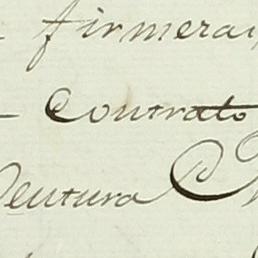 firmera
Contrato
Ventura